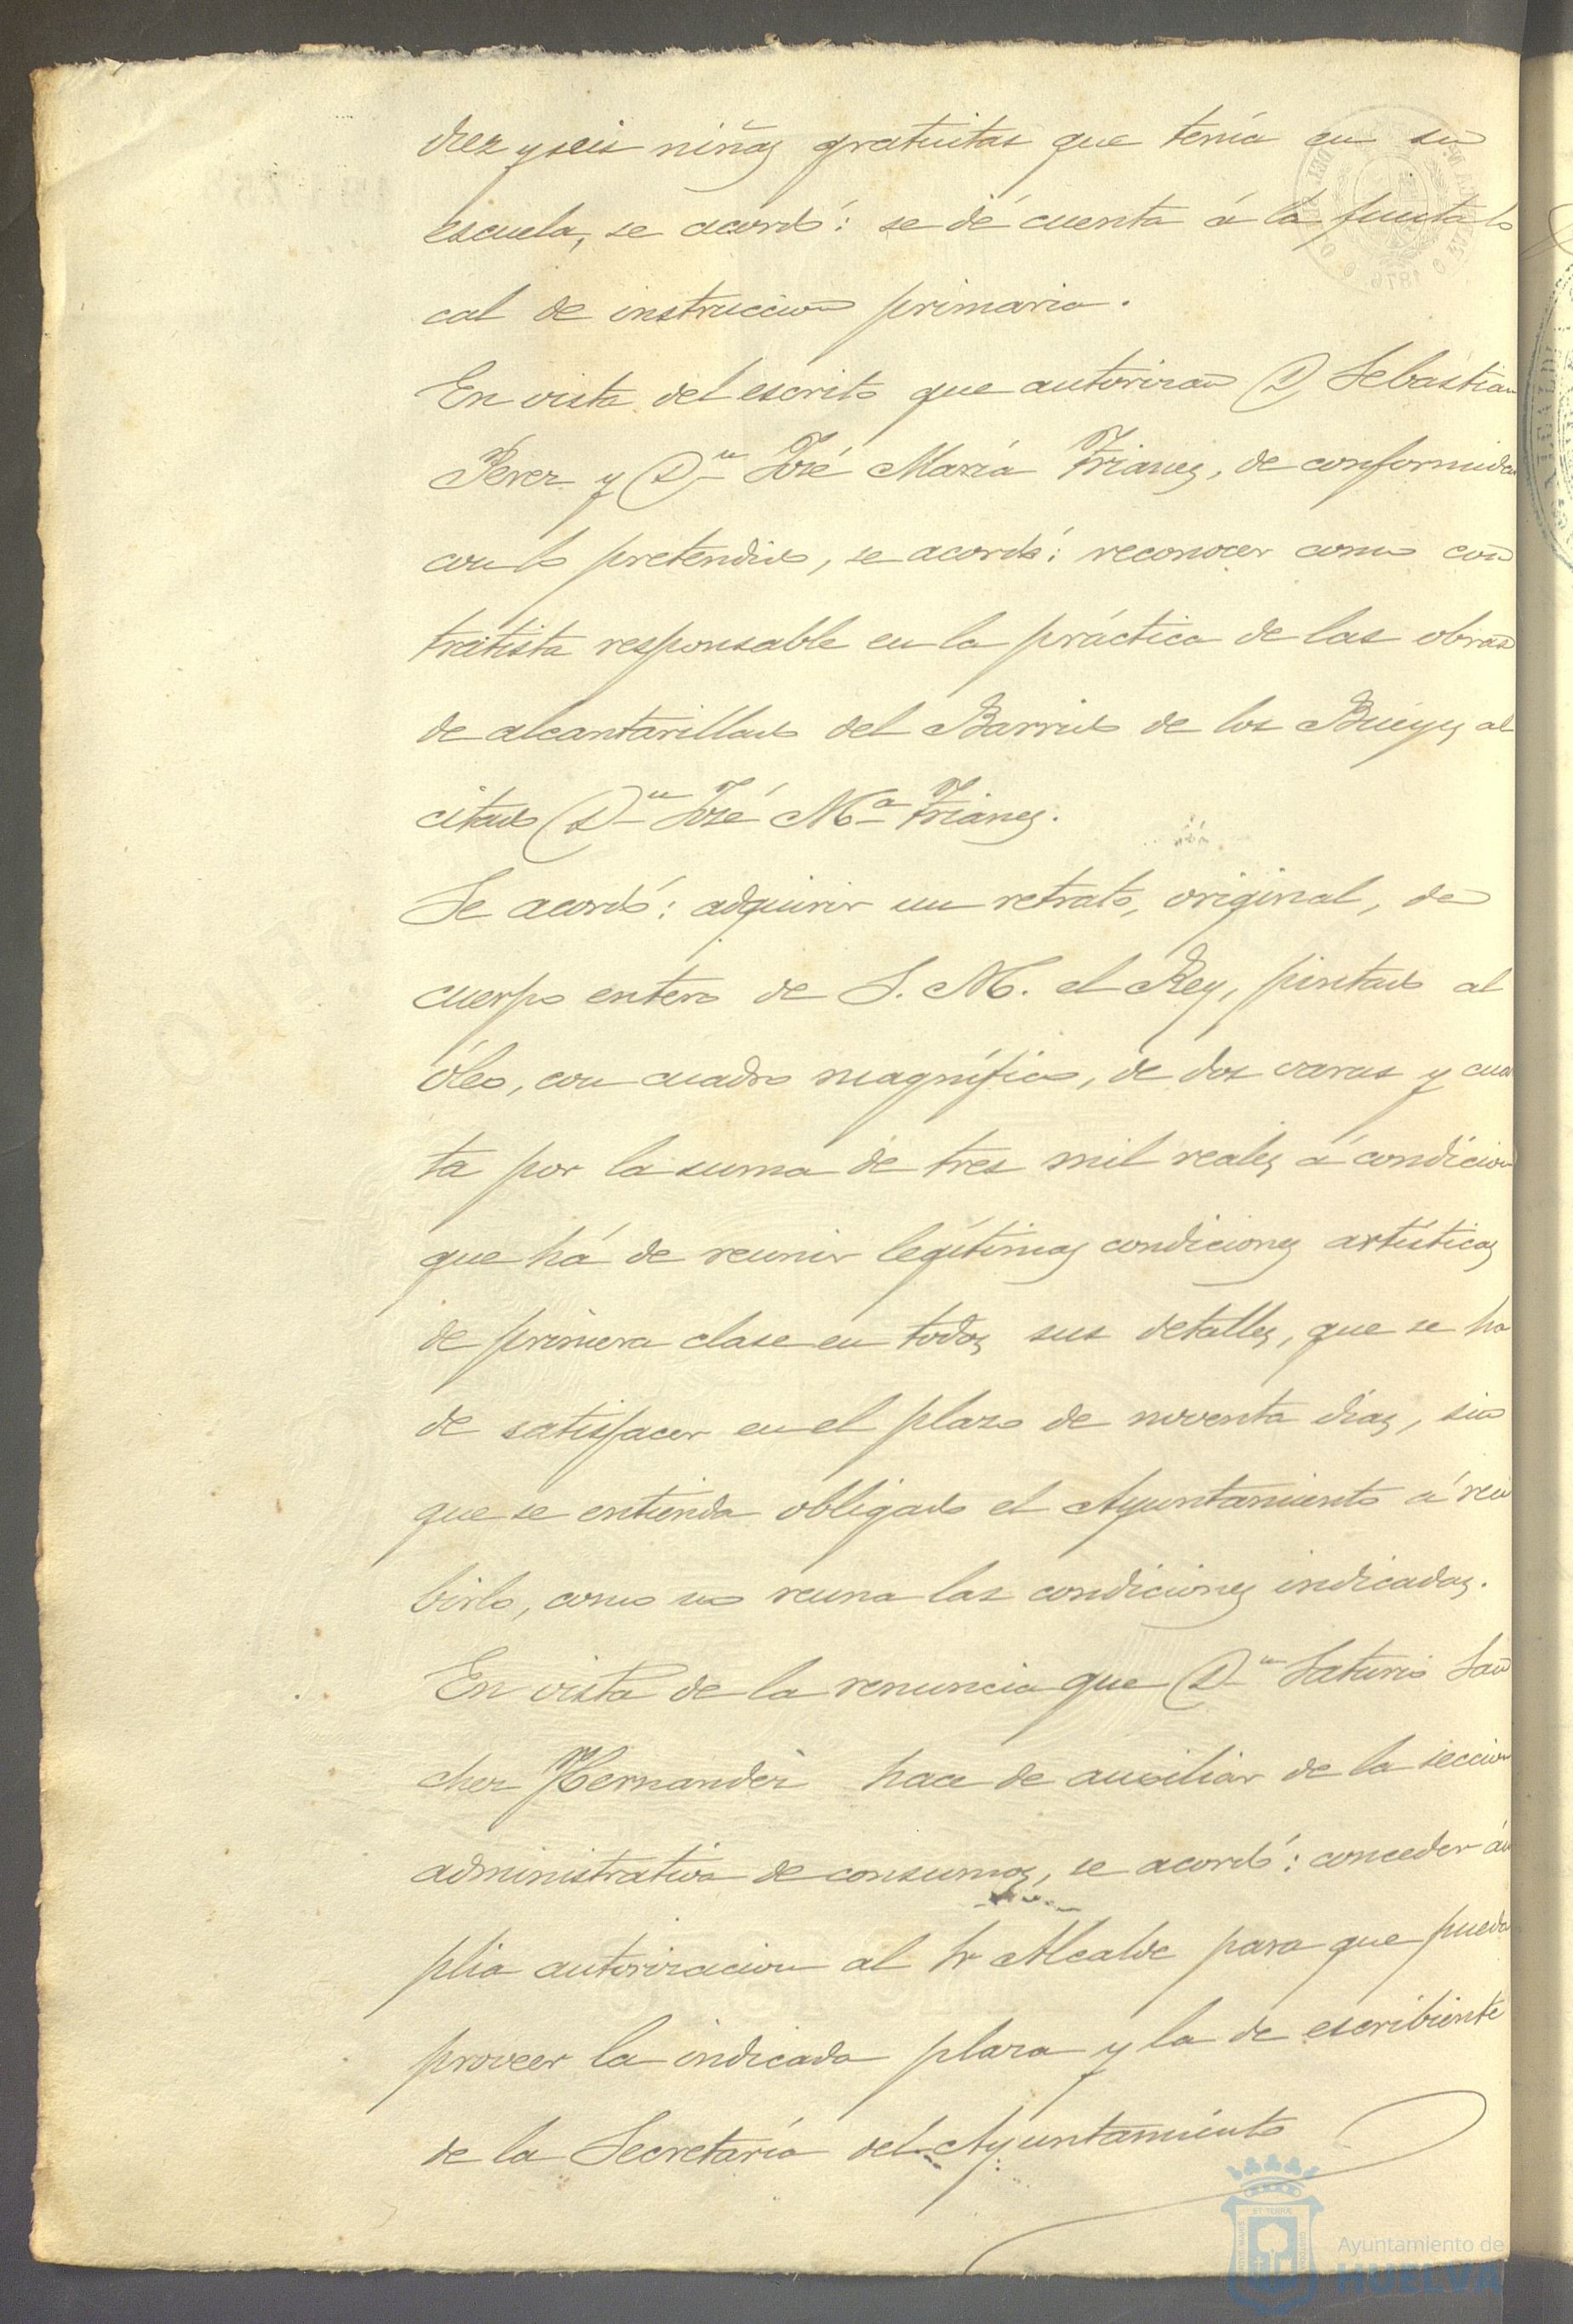 diez y seis niñas gratuitas que tenía en su
escuela, se acordó: se dé cuenta á la Junta lo
cal de instruccion primaria.
En vista del escrito que autorizan D. Sebastian
Perez y Dn José María Trianes, de conformidad
con lo pretendido, se acordó: reconocer como con
tratista responsable en la práctica de las obras
de alcantarillado del Barrio de los Bueyes al
citado Dn José Ma Trianes.
Se acordó: adquirir un retrato, original, de
cuerpo entero de S. M. el Rey, pintado al
óleo, con cuadro magnífico, de dos varas y cuar
ta por la suma de tres mil reales á condicion
que há de reunir legítimas condiciones artísticas
de primera clase en todos sus detalles, que se ha
de satisfacer en el plazo de noventa dias, sin
que se entienda obligado el Ayuntamiento á reci
birlo, como no reuna las condiciones indicadas.
En vista de la renuncia que Dn Saturio San
chez Hernandez hace de auxiliar de la seccion
administrativa de consumos, se acordó: conceder ám
plia autorizacion al Sr Alcalde para que pueda
proveer la indicada plaza y la de escribiente
de la Secretaría del Ayuntamiento
Ayuntamiento de
HUELVA